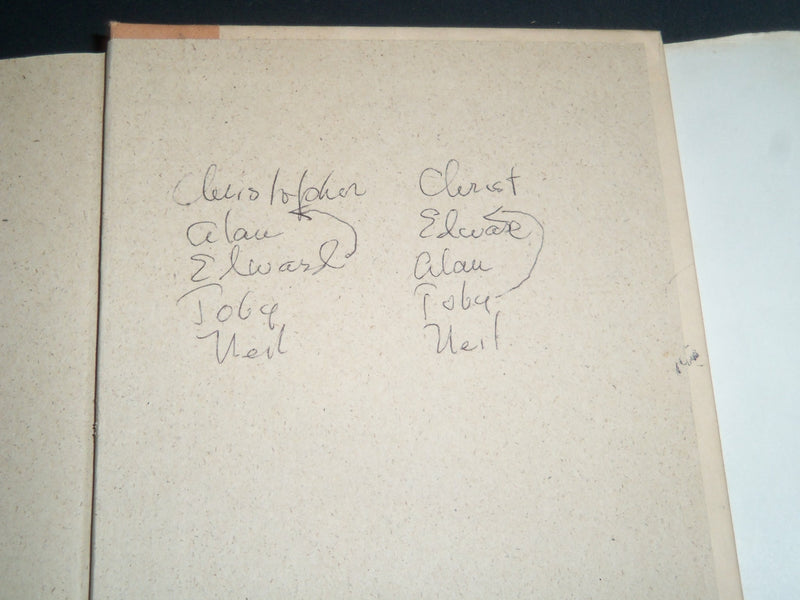 Christopher
Alan
Edward
Toby
Neil
Christ
Edward
Alan
Toby
Neil